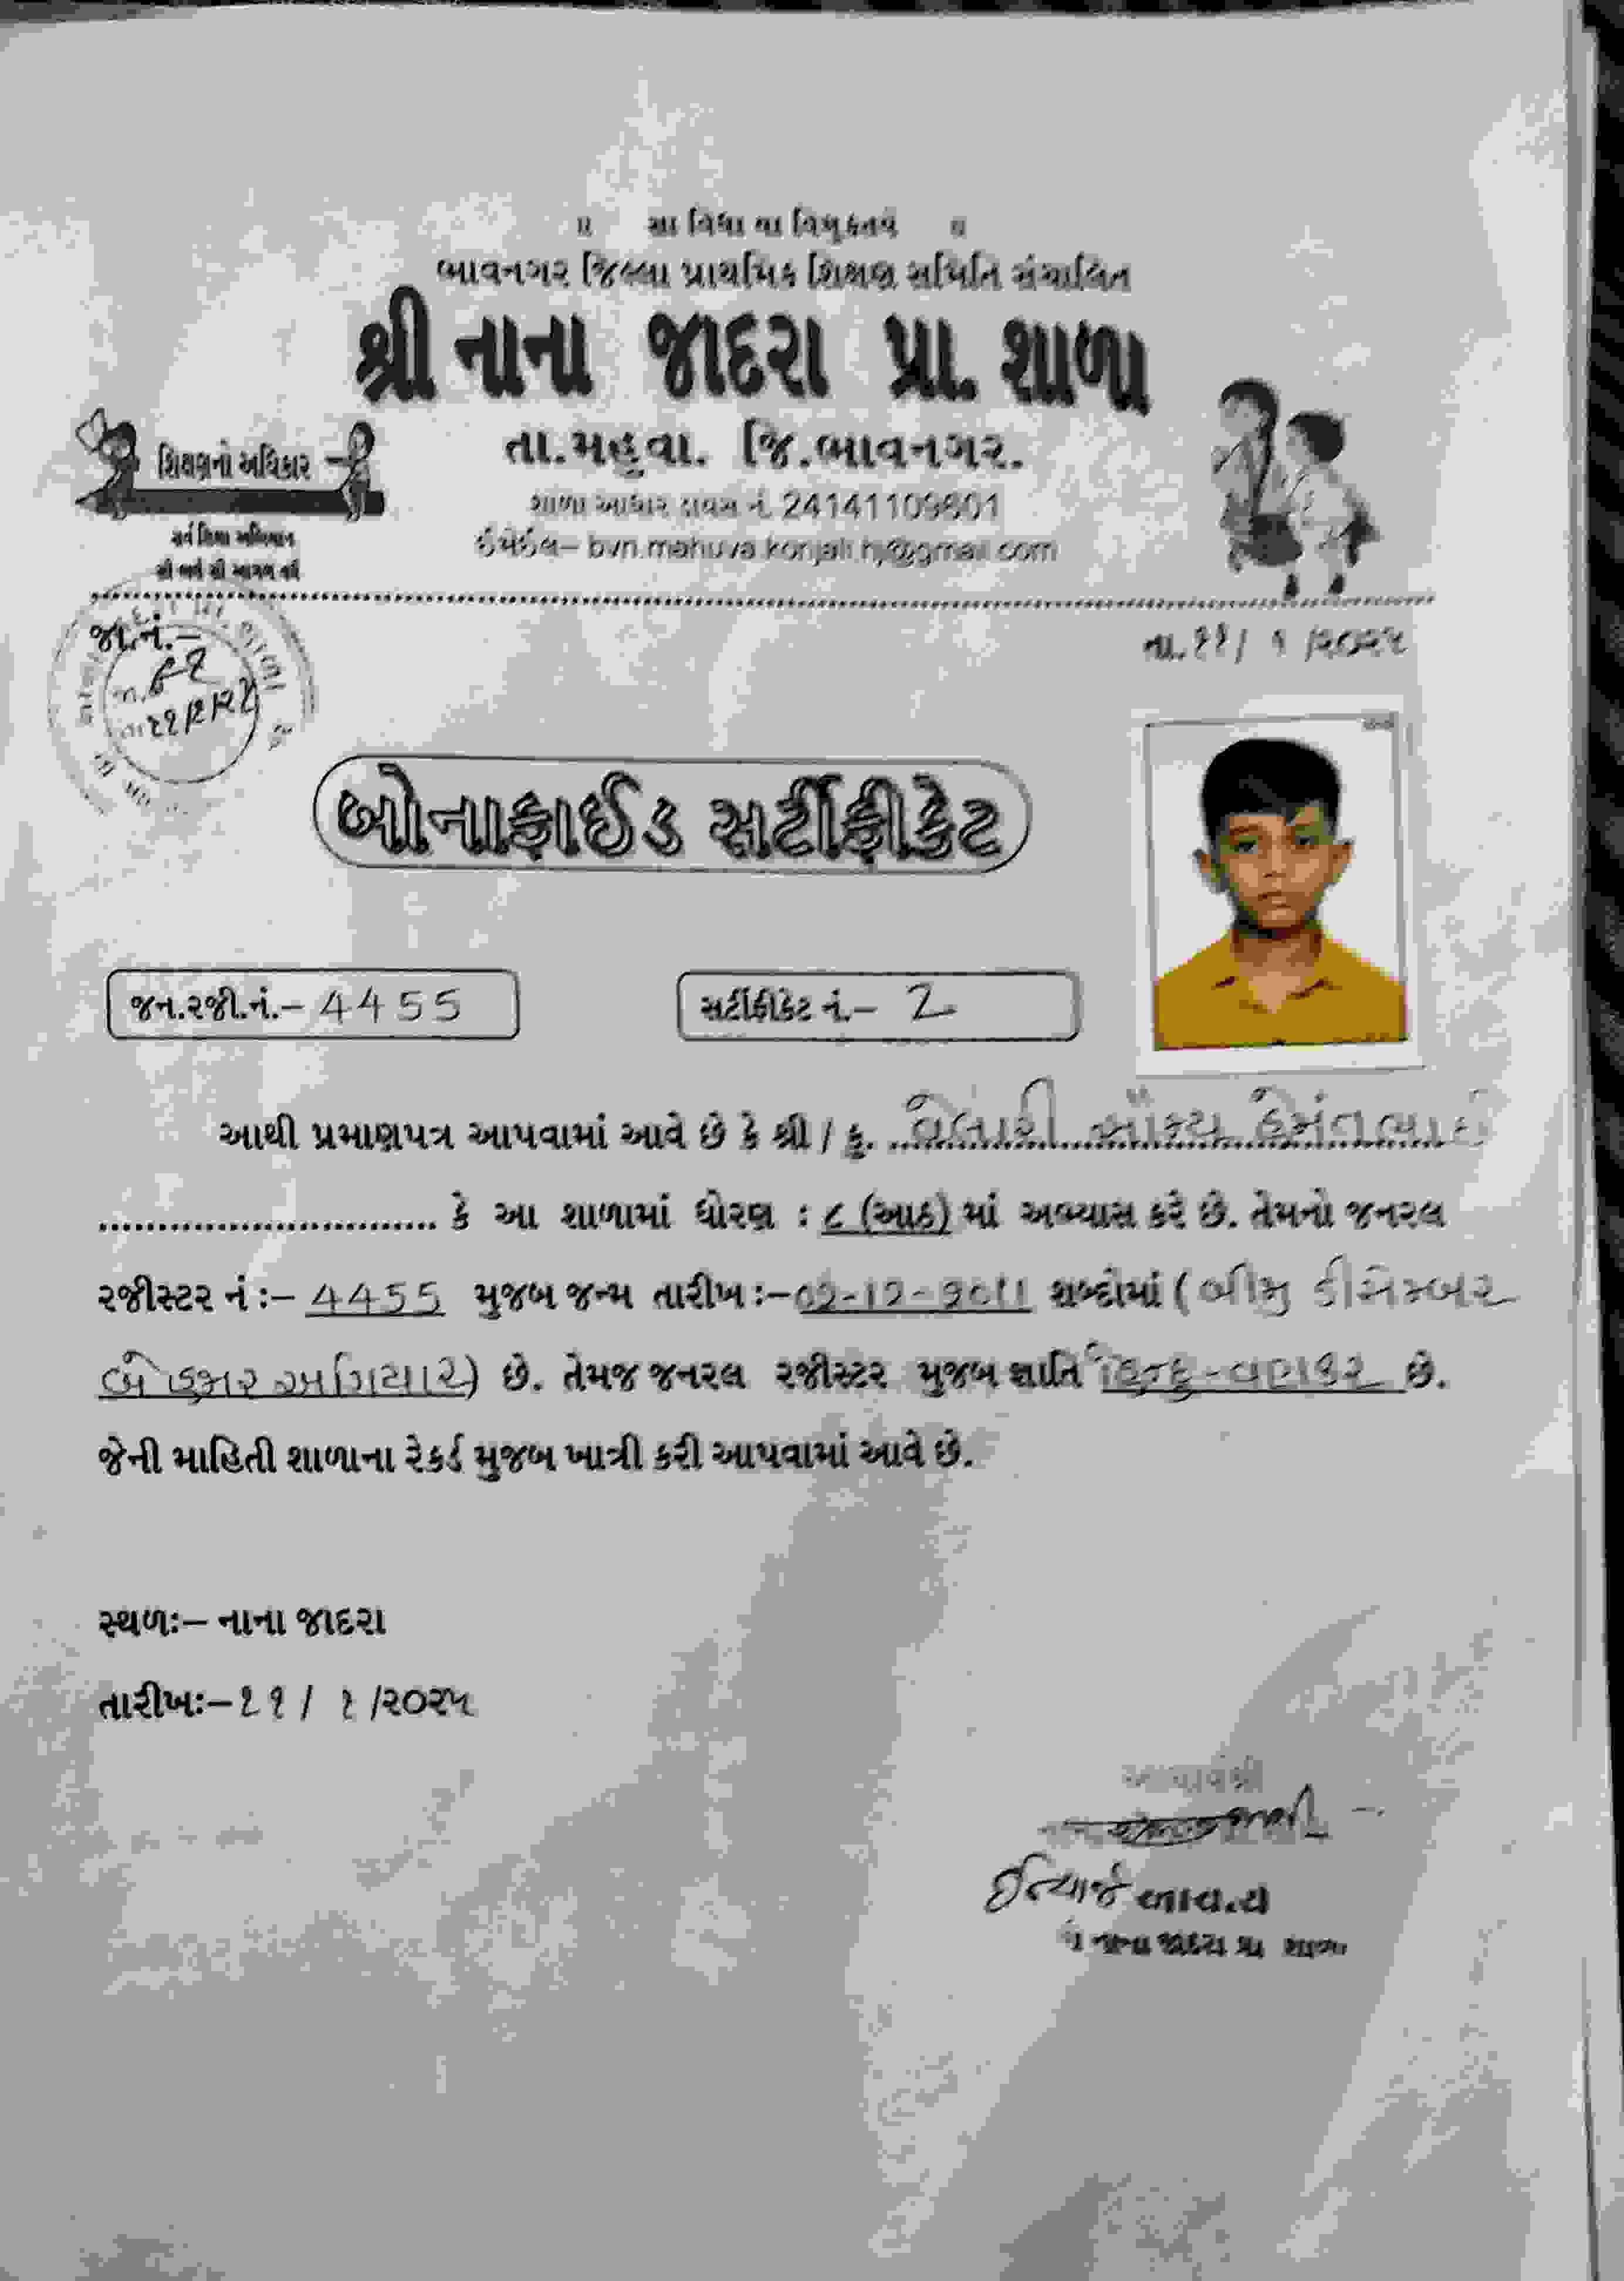 ॥ સા વિદ્યા યા વિમુક્તયે ॥
ભાવનગર જિલ્લા પ્રાથમિક શિક્ષણ સમિતિ સંચાલિત
શ્રી નાના જાદરા પ્રા. શાળા
તા.મહુવા. જિ.ભાવનગર.
શિક્ષણનો અધિકાર
શાળા આધાર ડાયસ નં. 24141109601
સર્વ શિક્ષા અભિયાન
ઈમેઈલ– bvn.mahuva.konjali.hj@gmail.com
સૌ ભણે સૌ આગળ વધે
જા.નં.–
તા.૧૧/ ૧ /૨૦૨૫
બોનાફાઈડ સર્ટીફીકેટ
જન.રજી.નં.– 4455
સર્ટીફીકેટ નં.– 2
આથી પ્રમાણપત્ર આપવામાં આવે છે કે શ્રી / કુ. હેમંતભાઈ
કે આ શાળામાં ધોરણ : ૮ (આઠ) માં અભ્યાસ કરે છે. તેમનો જનરલ
રજીસ્ટર નં :– 4455 મુજબ જન્મ તારીખ :–02-12-2011 શબ્દોમાં ( બીજી ડીસેમ્બર
બે હજાર અગિયાર) છે. તેમજ જનરલ રજીસ્ટર મુજબ જ્ઞાતિ હિન્દુ-વણકર છે.
જેની માહિતી શાળાના રેકર્ડ મુજબ ખાત્રી કરી આપવામાં આવે છે.
સ્થળઃ– નાના જાદરા
તારીખઃ–૧૧ / ૧ /૨૦૨૫
આચાર્યશ્રી
ઈન્ચાર્જ આચાર્ય
શ્રી નાના જાદરા પ્રા શાળા